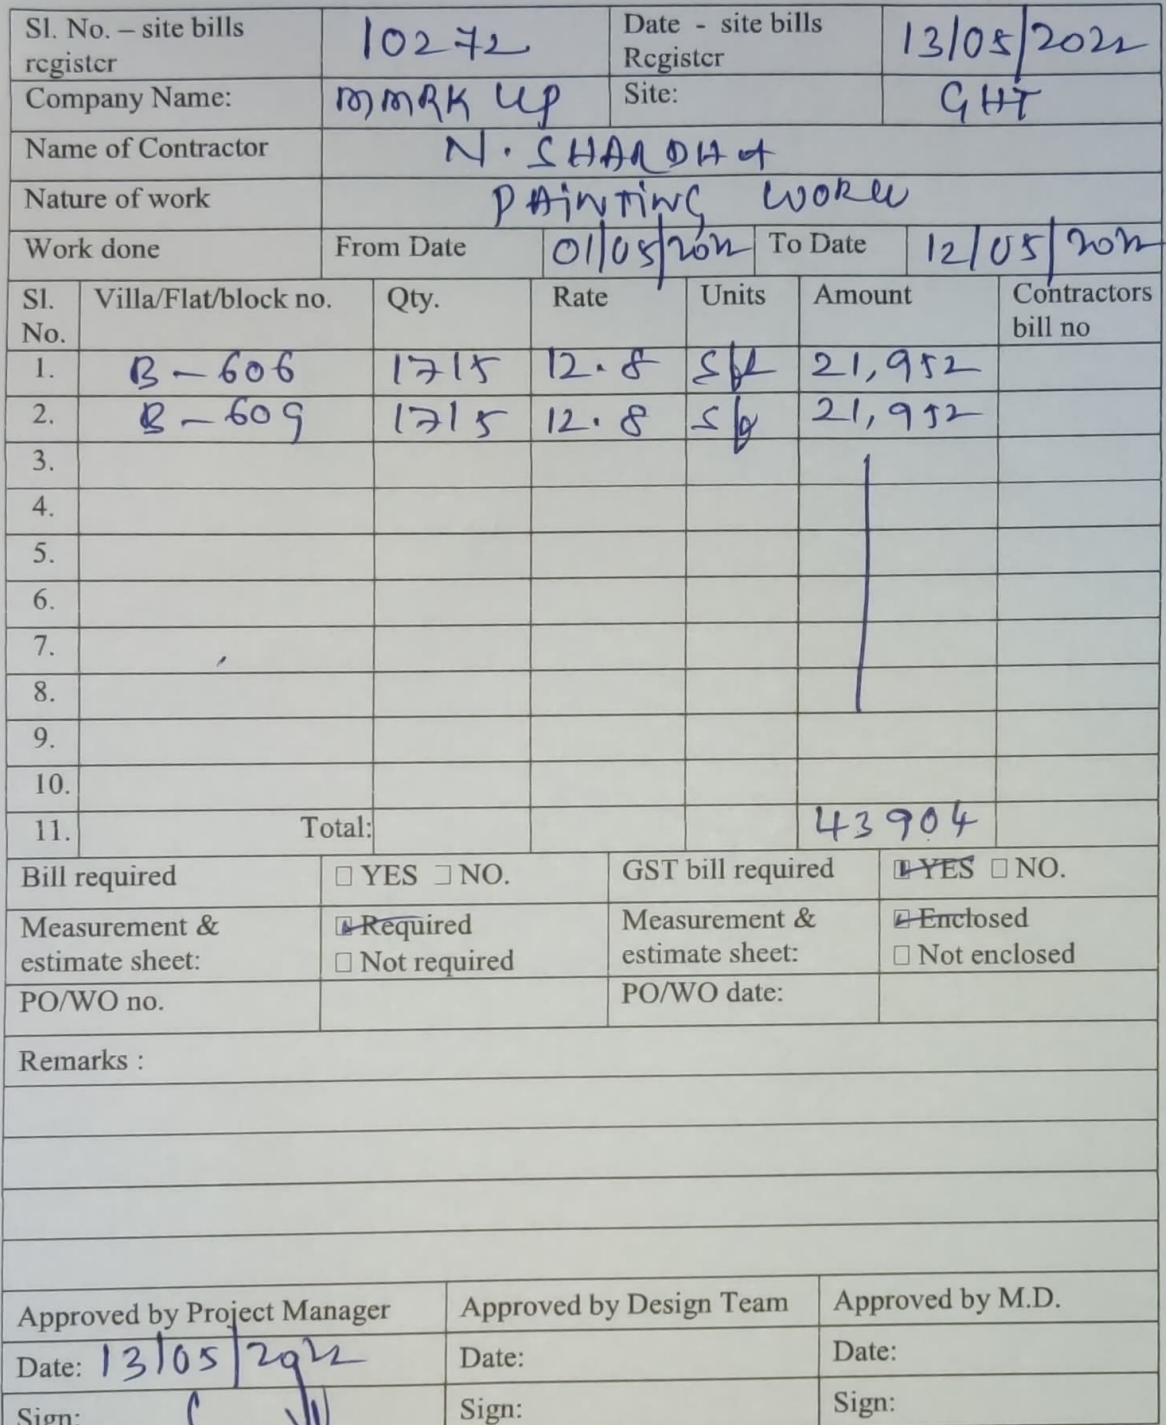 Sl. No. – site bills register 10272 Date - site bills Register 13/05/2022
Company Name: MMRK UP Site: GHT
Name of Contractor N. SHARDHA
Nature of work PAiNTiNG WORK
Work done From Date 01/05/2022 To Date 12/05/2022
Sl. No. Villa/Flat/block no. Qty. Rate Units Amount Contractors bill no
1. B-606 1715 12.8 Sft 21,952
2. B-609 1715 12.8 Sft 21,952
3.
4.
5.
6.
7.
8.
9.
10.
11. Total: 43904
Bill required ☐ YES ☐ NO. GST bill required ☑ YES ☐ NO.
Measurement & estimate sheet: ☑ Required ☐ Not required Measurement & estimate sheet: ☑ Enclosed ☐ Not enclosed
PO/WO no. PO/WO date:
Remarks :
Approved by Project Manager Approved by Design Team Approved by M.D.
Date: 13/05/2022 Date: Date:
Sign: Sign: Sign: